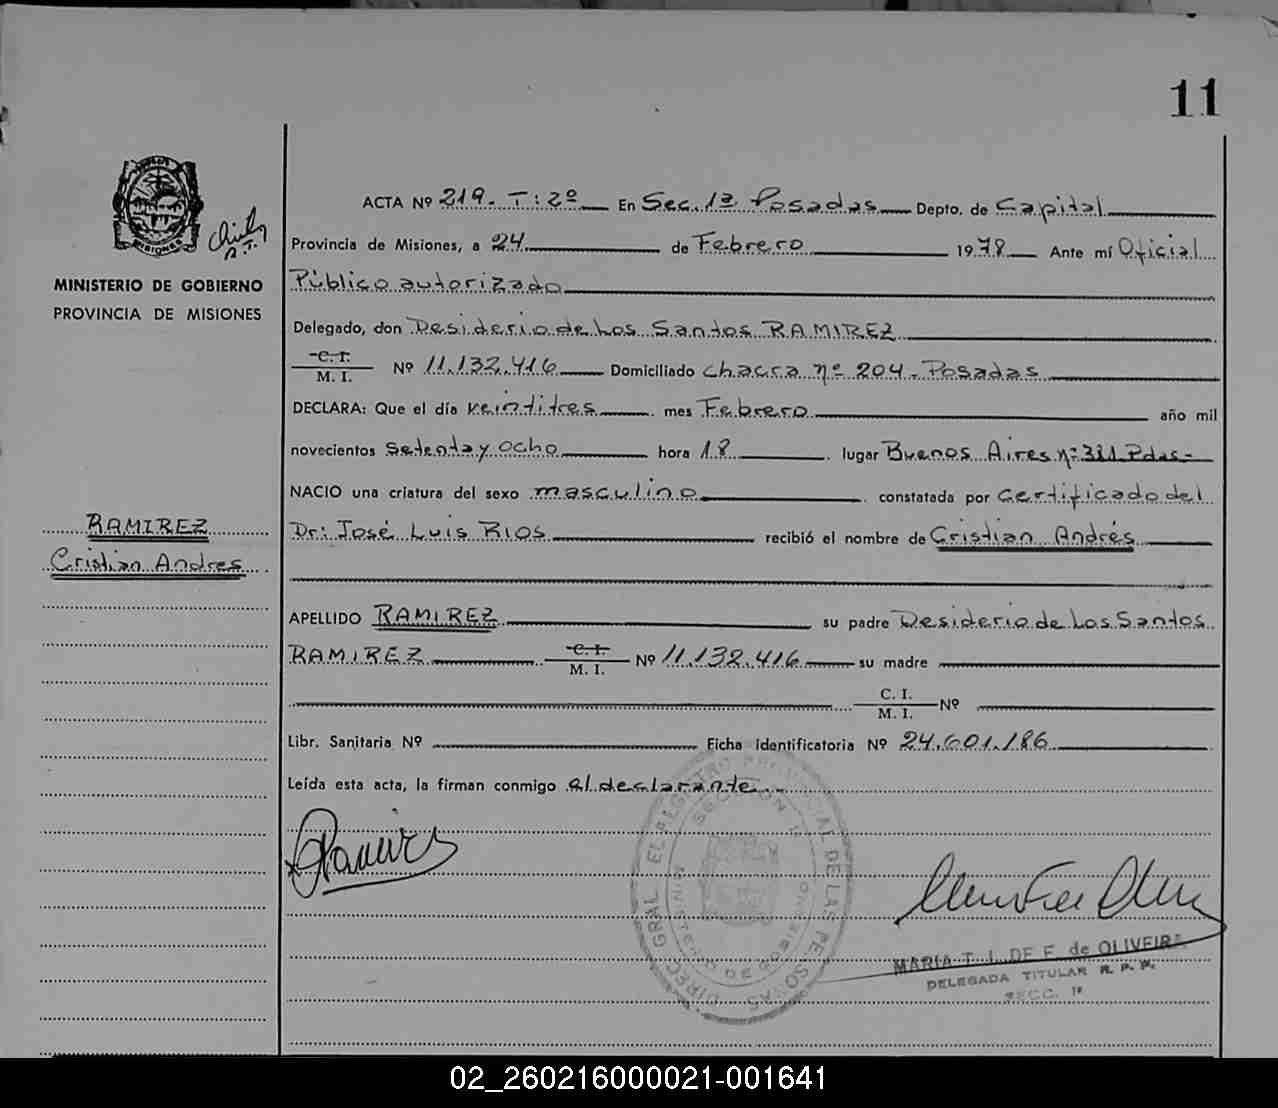 11
MINISTERIO DE GOBIERNO
PROVINCIA DE MISIONES
RAMIREZ
Cristian Andres
ACTA Nº 219. T: 2º En Sec. 1ª Posadas Depto. de Capital
Provincia de Misiones, a 24 de Febrero 1978 Ante mí Oficial
Público autorizado
Delegado, don Desiderio de Los Santos RAMIREZ
C. I.
M. I. Nº 11.132.416 Domiciliado chacra nº 204. Posadas
DECLARA: Que el día veintitres mes Febrero año mil
novecientos setenta y ocho hora 18 lugar Buenos Aires nº 311 Pdas-
NACIO una criatura del sexo masculino constatada por certificado del
Dr: José Luis RIOS recibió el nombre de Cristian Andrés
APELLIDO RAMIREZ su padre Desiderio de Los Santos
RAMIREZ C. I. M. I. Nº 11.132.416 su madre
C. I.
M. I. Nº
Libr. Sanitaria Nº Ficha Identificatoria Nº 24.601.186
Leída esta acta, la firman conmigo el declarante.-
Ramirez
DIREC. GRAL. EL REGISTRO PROVINCIAL DE LAS PERSONAS
SECCION 1ª
MINISTERIO DE GOBIERNO
MARIA T. J. DE F. de OLIVEIRA
DELEGADA TITULAR R. P. P.
SECC. 1ª
02_260216000021-001641